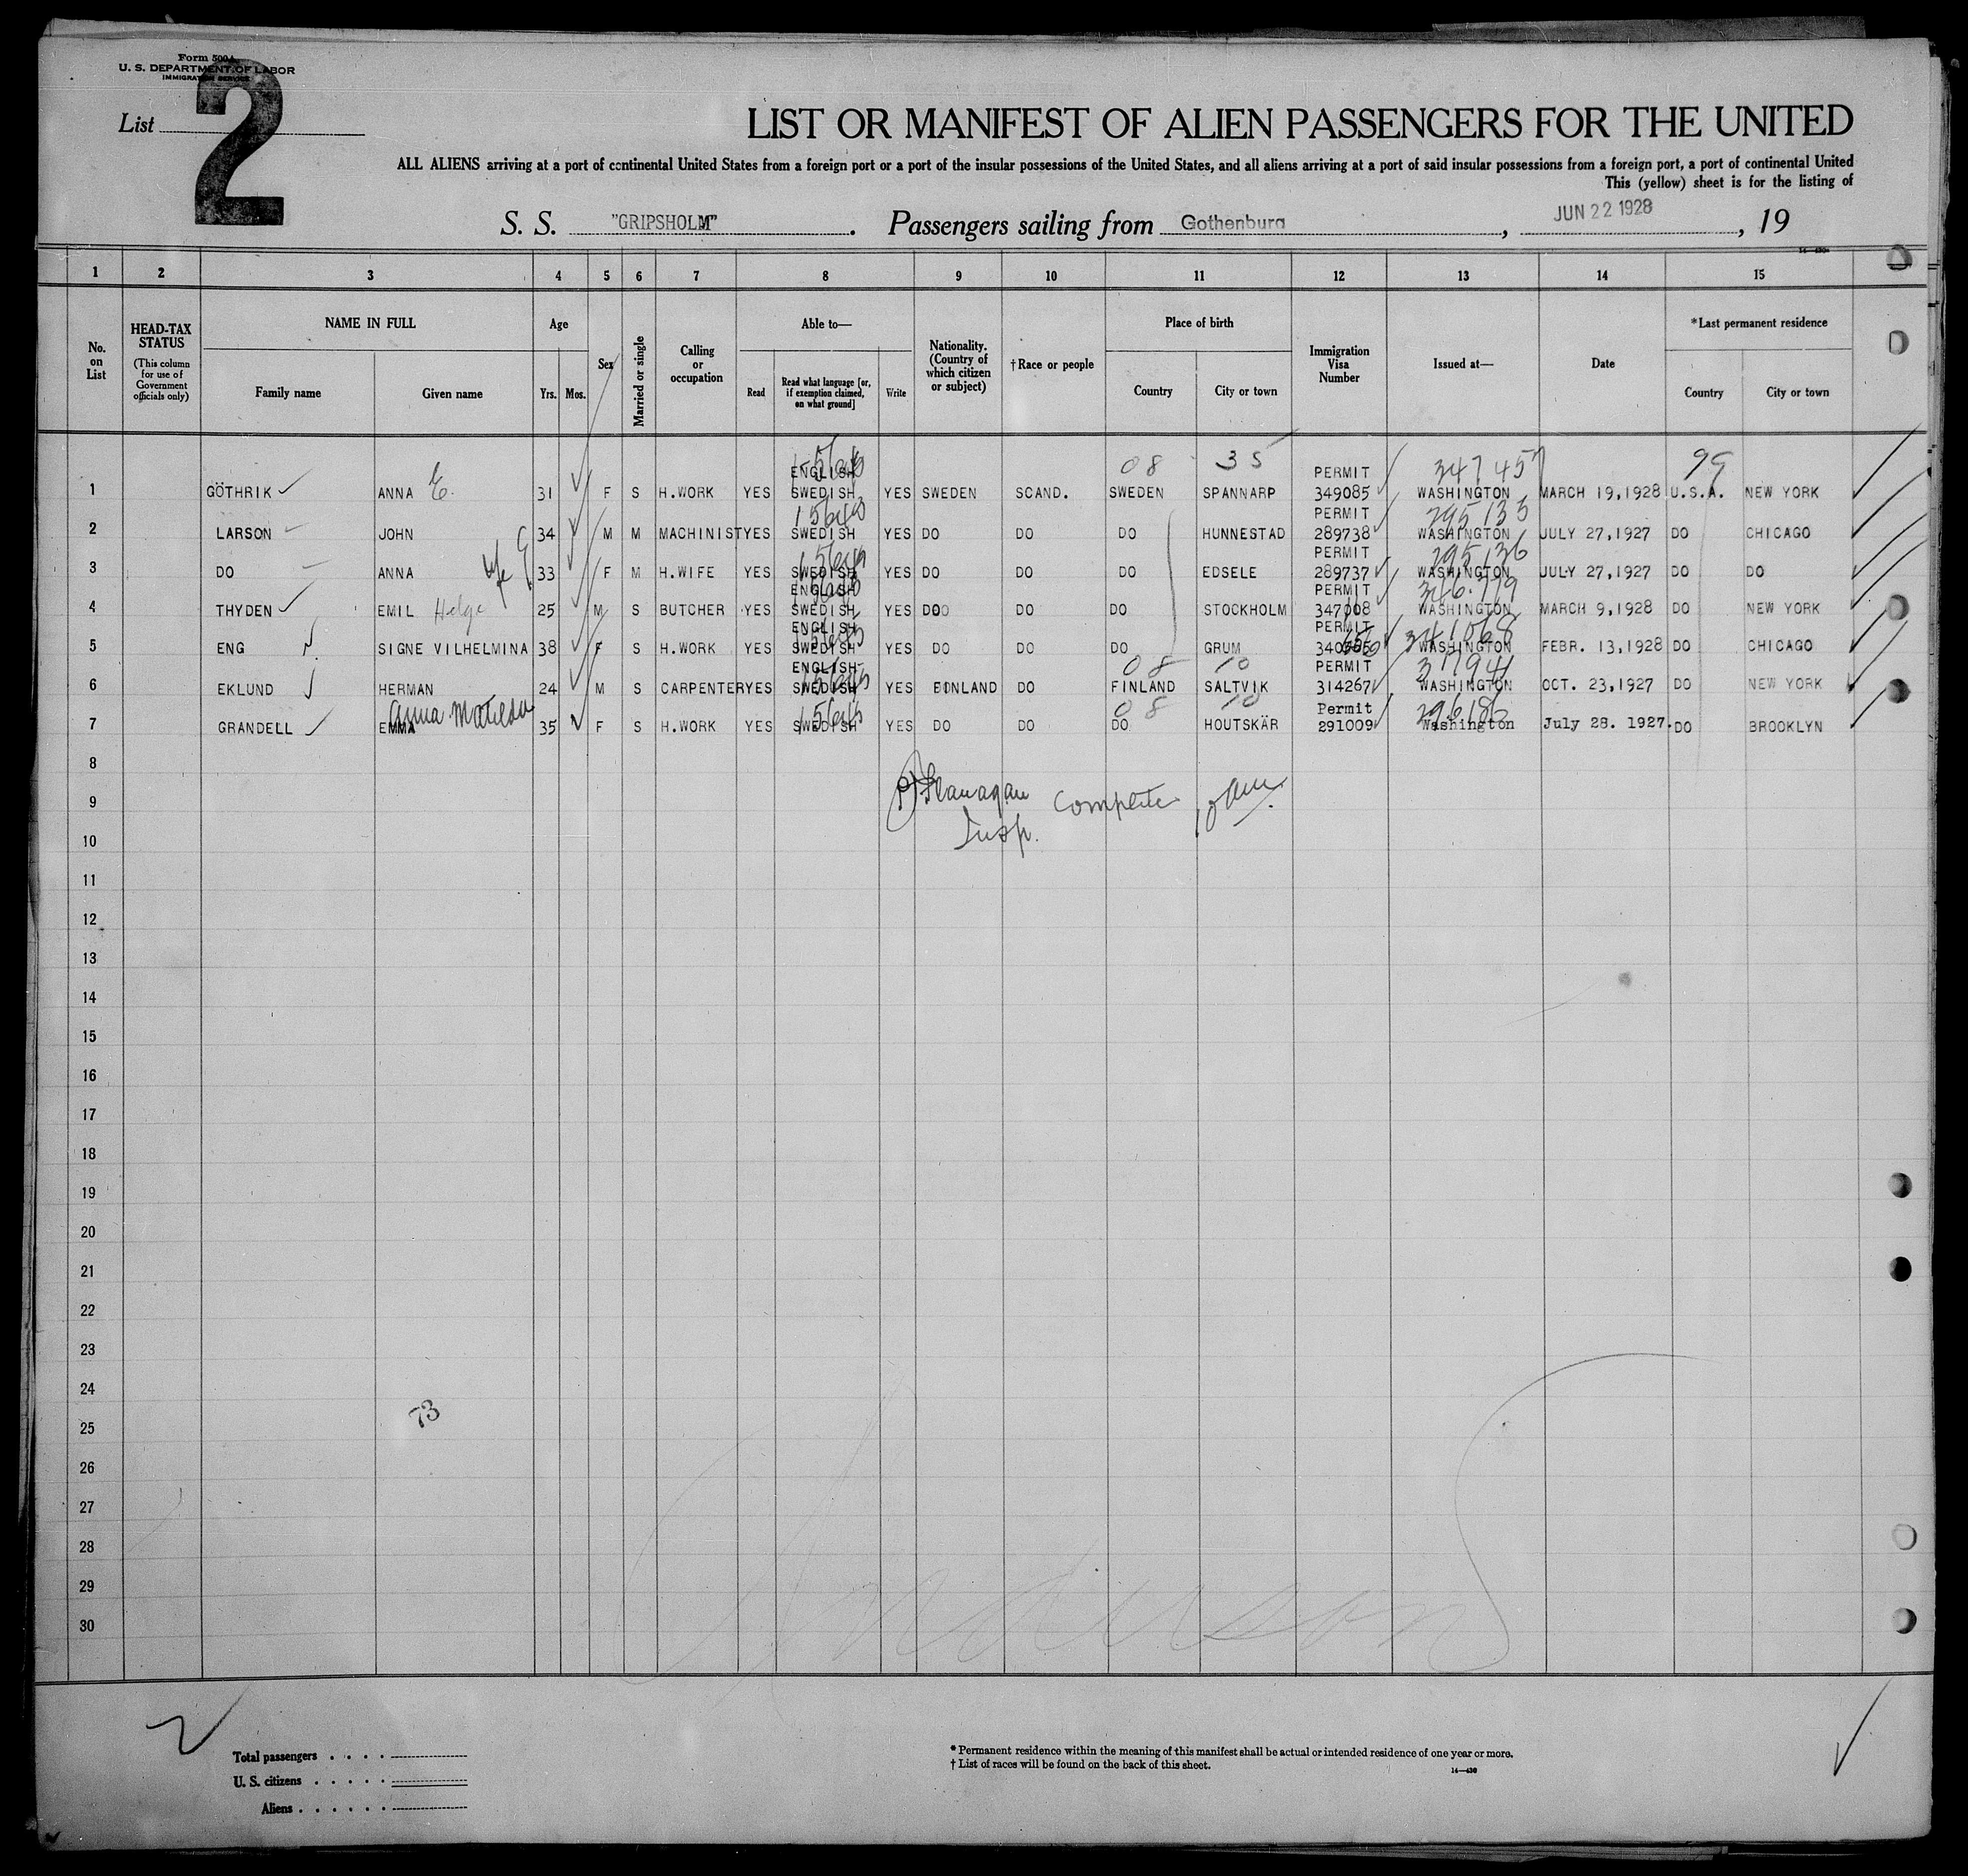 Form 500A
U. S. DEPARTMENT OF LABOR
IMMIGRATION SERVICE
2
List
LIST OR MANIFEST OF ALIEN PASSENGERS FOR THE UNITED
ALL ALIENS arriving at a port of continental United States from a foreign port or a port of the insular possessions of the United States, and all aliens arriving at a port of said insular possessions from a foreign port, a port of continental United
This (yellow) sheet is for the listing of
S. S. "GRIPSHOLM". Passengers sailing from Gothenburg, JUN 22 1928, 19
1 2 3 4 5 6 7 8 9 10 11 12 13 14 15
No. on List
HEAD-TAX STATUS (This column for use of Government officials only)
NAME IN FULL
Family name Given name
Age
Yrs. Mos.
Sex
Married or single
Calling or occupation
Able to—
Read Read what language [or, if exemption claimed, on what ground] Write
Nationality. (Country of which citizen or subject)
†Race or people
Place of birth
Country City or town
Immigration Visa Number
Issued at—
Date
*Last permanent residence
Country City or town
08 35 347457 99
ENGLISH PERMIT
1 GÖTHRIK ANNA E. 31 F S H.WORK YES SWEDISH YES SWEDEN SCAND. SWEDEN SPANNARP 349085 WASHINGTON MARCH 19,1928 U.S.A. NEW YORK
PERMIT 295135
2 LARSON JOHN 34 M M MACHINIST YES SWEDISH YES DO DO DO HUNNESTAD 289738 WASHINGTON JULY 27,1927 DO CHICAGO
PERMIT 295136
3 DO ANNA wife 33 F M H.WIFE YES SWEDISH YES DO DO DO EDSELE 289737 WASHINGTON JULY 27,1927 DO DO
ENGLISH PERMIT 346.779
4 THYDEN EMIL Helge 25 M S BUTCHER YES SWEDISH YES DO DO DO STOCKHOLM 347008 WASHINGTON MARCH 9,1928 DO NEW YORK
ENGLISH PERMIT 341068
5 ENG SIGNE VILHELMINA 38 F S H.WORK YES SWEDISH YES DO DO DO GRUM WASHINGTON FEBR. 13,1928 DO CHICAGO
ENGLISH 08 10 PERMIT 317941
6 EKLUND HERMAN 24 M S CARPENTER YES SWEDISH YES FINLAND DO FINLAND SALTVIK 314267 WASHINGTON OCT. 23,1927 DO NEW YORK
Anna Matilda 08 10 Permit 296186
7 GRANDELL EMMA 35 F S H.WORK YES SWEDISH YES DO DO DO HOUTSKÄR 291009 Washington July 28. 1927. DO BROOKLYN
8
Flanagan Complete
9
Insp.
10
11
12
13
14
15
16
17
18
19
20
21
22
23
24
73
25
26
27
28
29
30
Total passengers
U. S. citizens
Aliens
* Permanent residence within the meaning of this manifest shall be actual or intended residence of one year or more.
† List of races will be found on the back of this sheet.
14—430